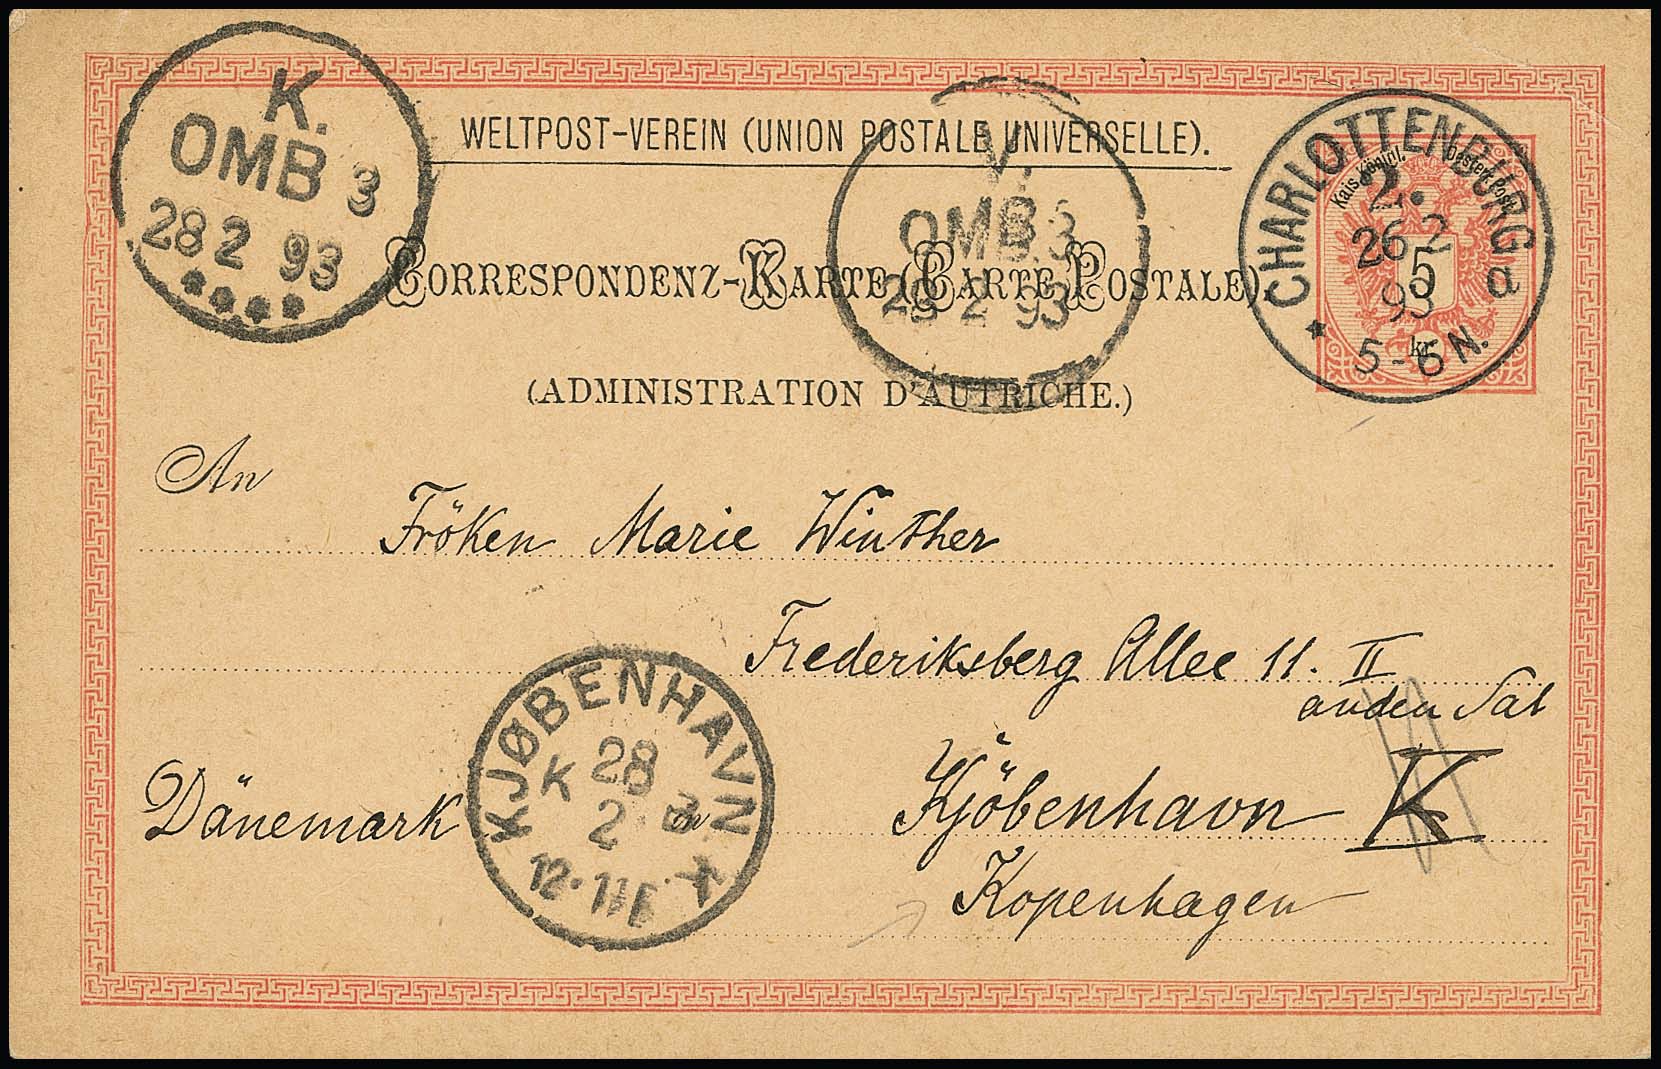 K.
OMB 3
28 2 93
WELTPOST-VEREIN (UNION POSTALE UNIVERSELLE).
V.
OMB. 3
28 2 93
CHARLOTTENBURG
2.
26 2
93
a
5-6 N.
Kais. Königl. Oesterr. Post
5
kr.
CORRESPONDENZ-KARTE (CARTE POSTALE).
(ADMINISTRATION D'AUTRICHE.)
An
Fröken Marie Winther
Frederiksberg Allee 11. II
anden Sal
KJØBENHAVN
K 28
2
Dänemark
Kjöbenhavn K
Kopenhagen